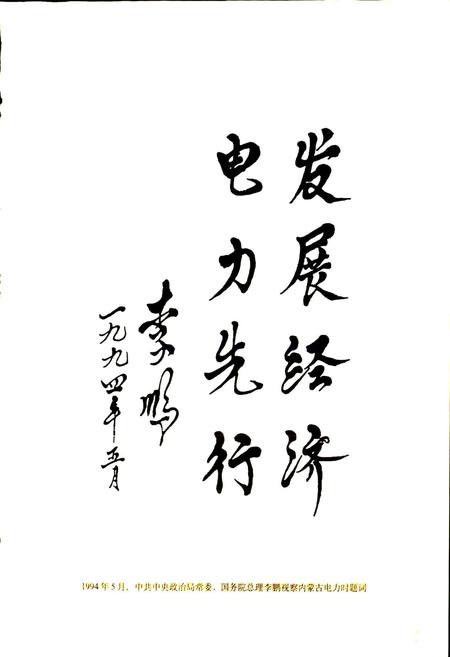 发展经济
电力先行
李鹏
一九九四年五月
1994年5月，中共中央政治局常委、国务院总理李鹏视察内蒙古电力时题词